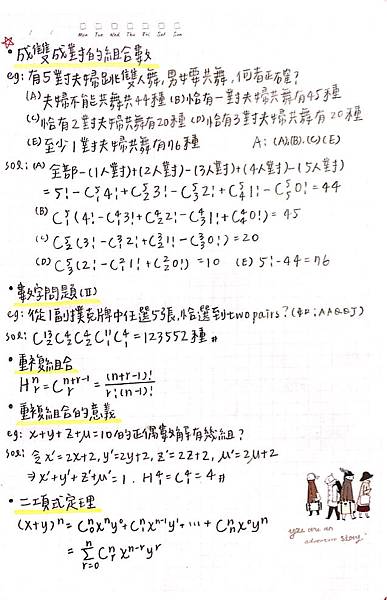 Mon Tue Wed Thu Fri Sat Sun
• 成雙成對的組合數
eg: 有5對夫婦跳雙人舞,男女要共舞,何者正確?
(A) 夫婦不能共舞共44種 (B) 恰有一對夫婦共舞有45種
(C) 恰有2對夫婦共舞有20種 (D) 恰有3對夫婦共舞有20種
(E) 至少1對夫婦共舞有76種 A: (A)(B)(C)(E)
sol: (A) 全部-(1人對)+(2人對)-(3人對)+(4人對)-(5人對)
= 5! - C⁵₁4! + C⁵₂3! - C⁵₃2! + C⁵₄1! - C⁵₅0! = 44
(B) C⁵₁(4! - C⁴₁3! + C⁴₂2! - C⁴₃1! + C⁴₄0!) = 45
(C) C⁵₂(3! - C³₁2! + C³₂1! - C³₃0!) = 20
(D) C⁵₃(2! - C²₁1! + C²₂0!) = 10 (E) 5! - 44 = 76
• 數字問題(II)
eg: 從1副撲克牌中任選5張,恰選到two pairs? (如: AAQQJ)
sol: C¹³₂ C⁴₂ C⁴₂ C¹¹₁ C⁴₁ = 123552種 #
• 重複組合
Hⁿᵣ = Cⁿ⁺ʳ⁻¹ᵣ = (n+r-1)! / r!(n-1)!
• 重複組合的意義
eg: x+y+z+u=10的正偶數解有幾組?
sol: 令x'=2x+2, y'=2y+2, z'=2z+2, u'=2u+2
⇒ x'+y'+z'+u'=1. H⁴₁=C⁴₁=4 #
• 二項式定理
(x+y)ⁿ = Cⁿ₀xⁿy⁰ + Cⁿ₁xⁿ⁻¹y¹ + ... + Cⁿₙx⁰yⁿ
= Σⁿᵣ₌₀ Cⁿᵣ xⁿ⁻ʳyʳ
you are an
adventure story.